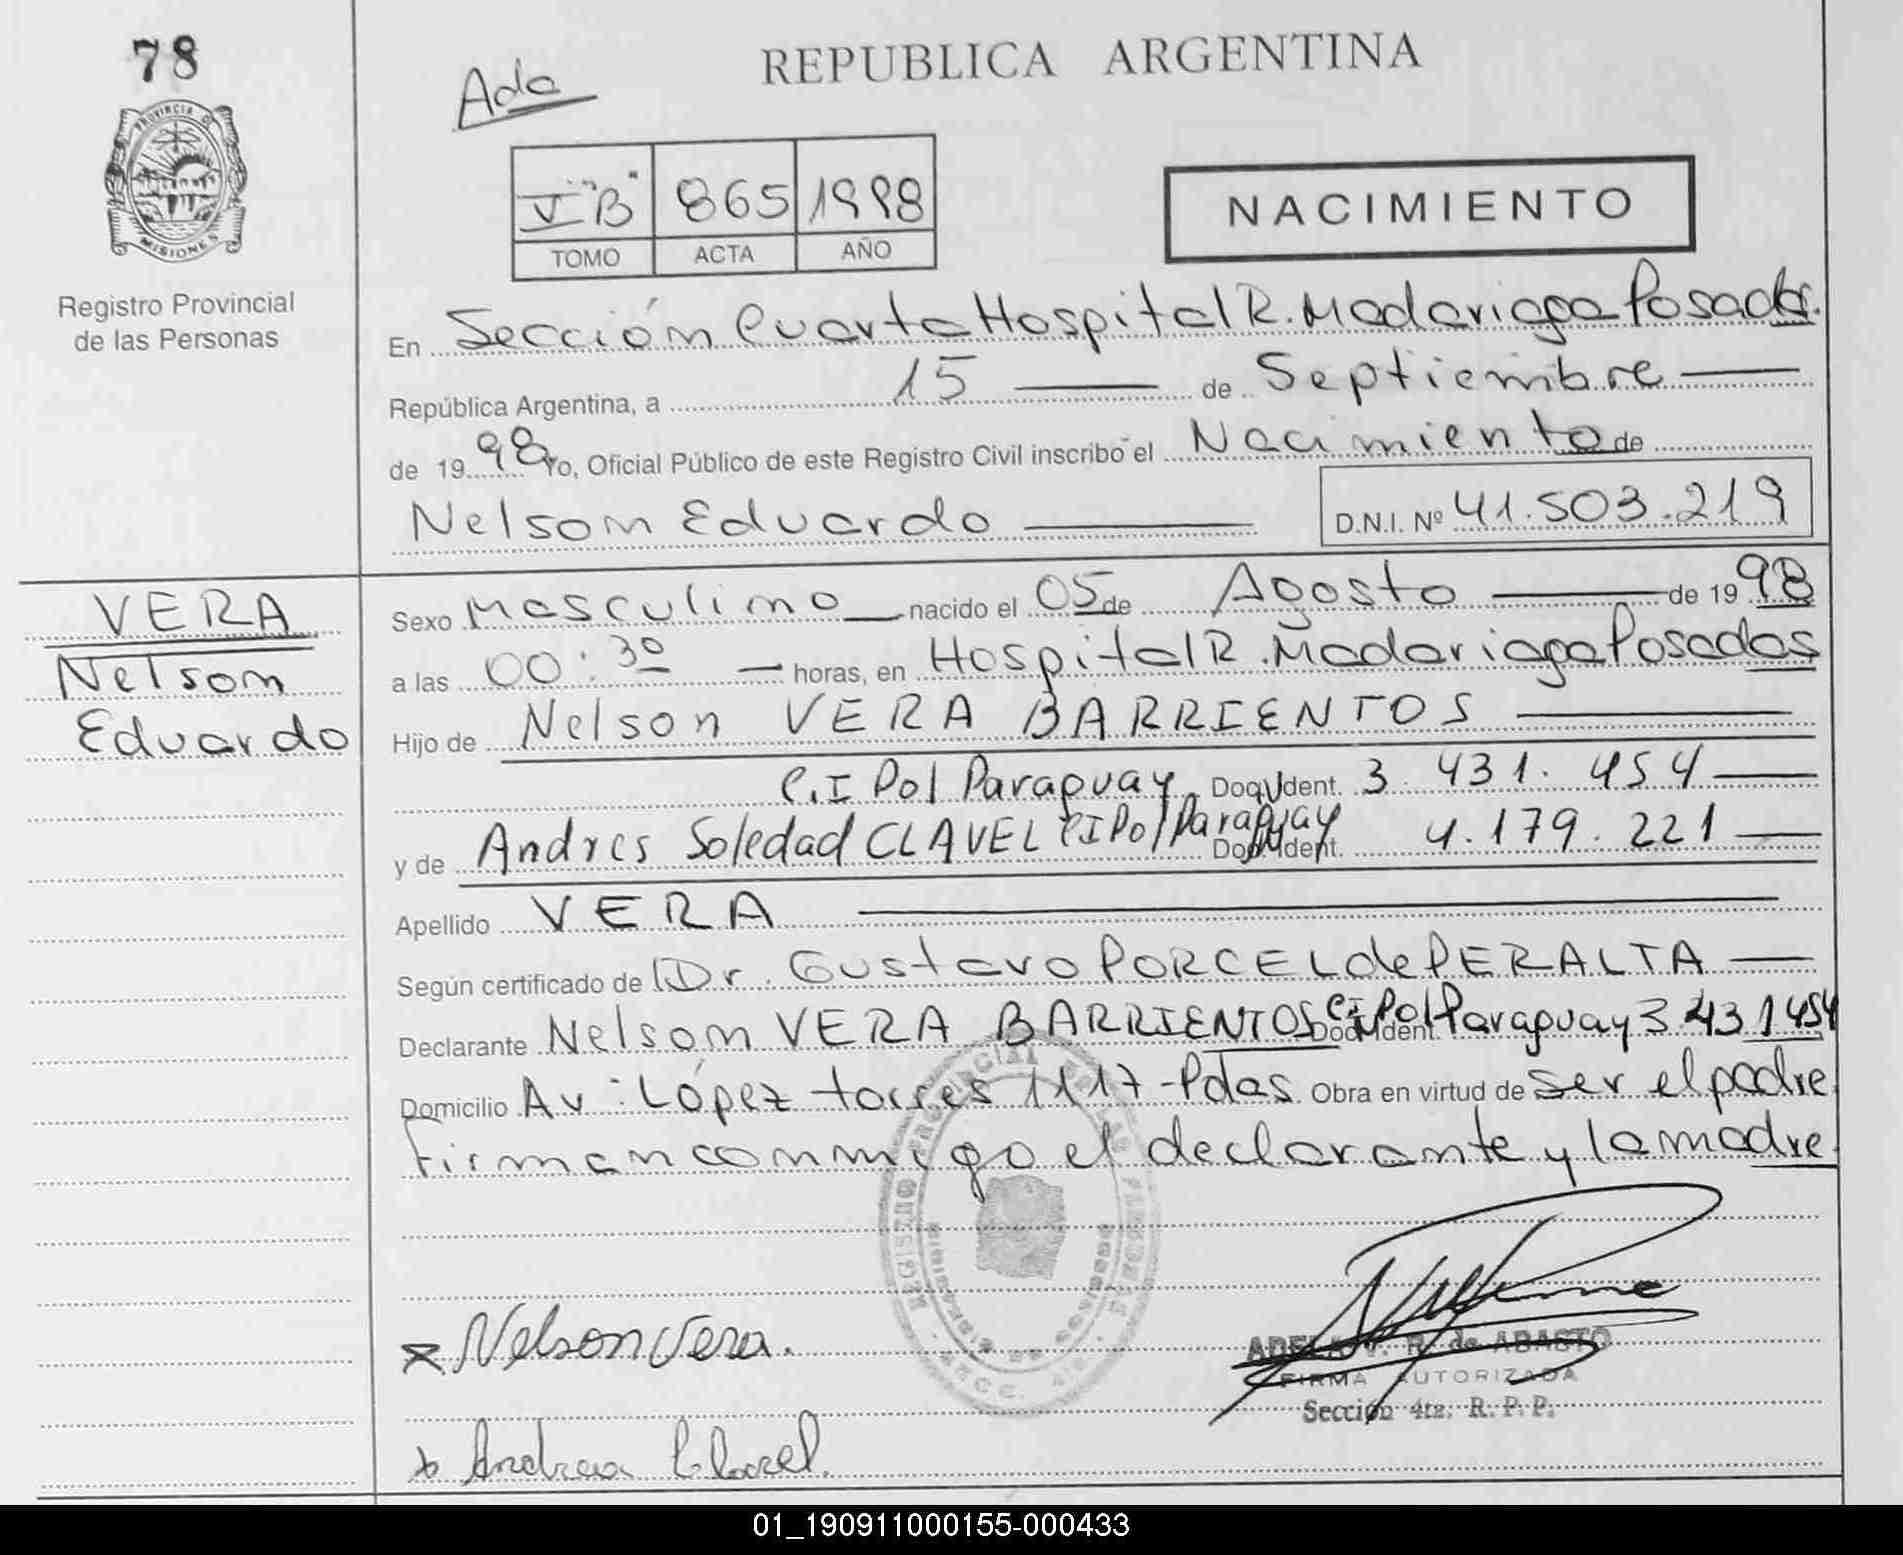 78
Ada
REPUBLICA ARGENTINA
PROVINCIA D
MISIONES
V "B" 865 1998
TOMO ACTA AÑO
NACIMIENTO
Registro Provincial
de las Personas
En Sección Cuarta Hospital R. Madariaga Posadas.
República Argentina, a 15 de Septiembre
de 1998 Yo, Oficial Público de este Registro Civil inscribo el Nacimiento de
Nelsom Eduardo D.N.I. Nº 41.503.219
VERA
Nelsom
Eduardo
Sexo Masculino nacido el 05 de Agosto de 1998
a las 00:30 horas, en Hospital R. Madariaga Posadas
Hijo de Nelson VERA BARRIENTOS
C.I Pol Paraguay Doc. Ident. 3.431.454
y de Andres Soledad CLAVEL CI Pol Paraguay Doc. Ident. 4.179.221
Apellido VERA
Según certificado de Dr. Gustavo PORCEL de PERALTA
Declarante Nelsom VERA BARRIENTOS C.I Pol Paraguay Doc. Ident. 3431454
Domicilio Av. López torres 1117 - Pdas. Obra en virtud de ser el padre
firman conmigo el declarante y la madre
Nelson Vera.
ADELA V. R. de ABASTO
FIRMA AUTORIZADA
Sección 4ta. R. P. P.
Andrea Clavel.
01_190911000155-000433